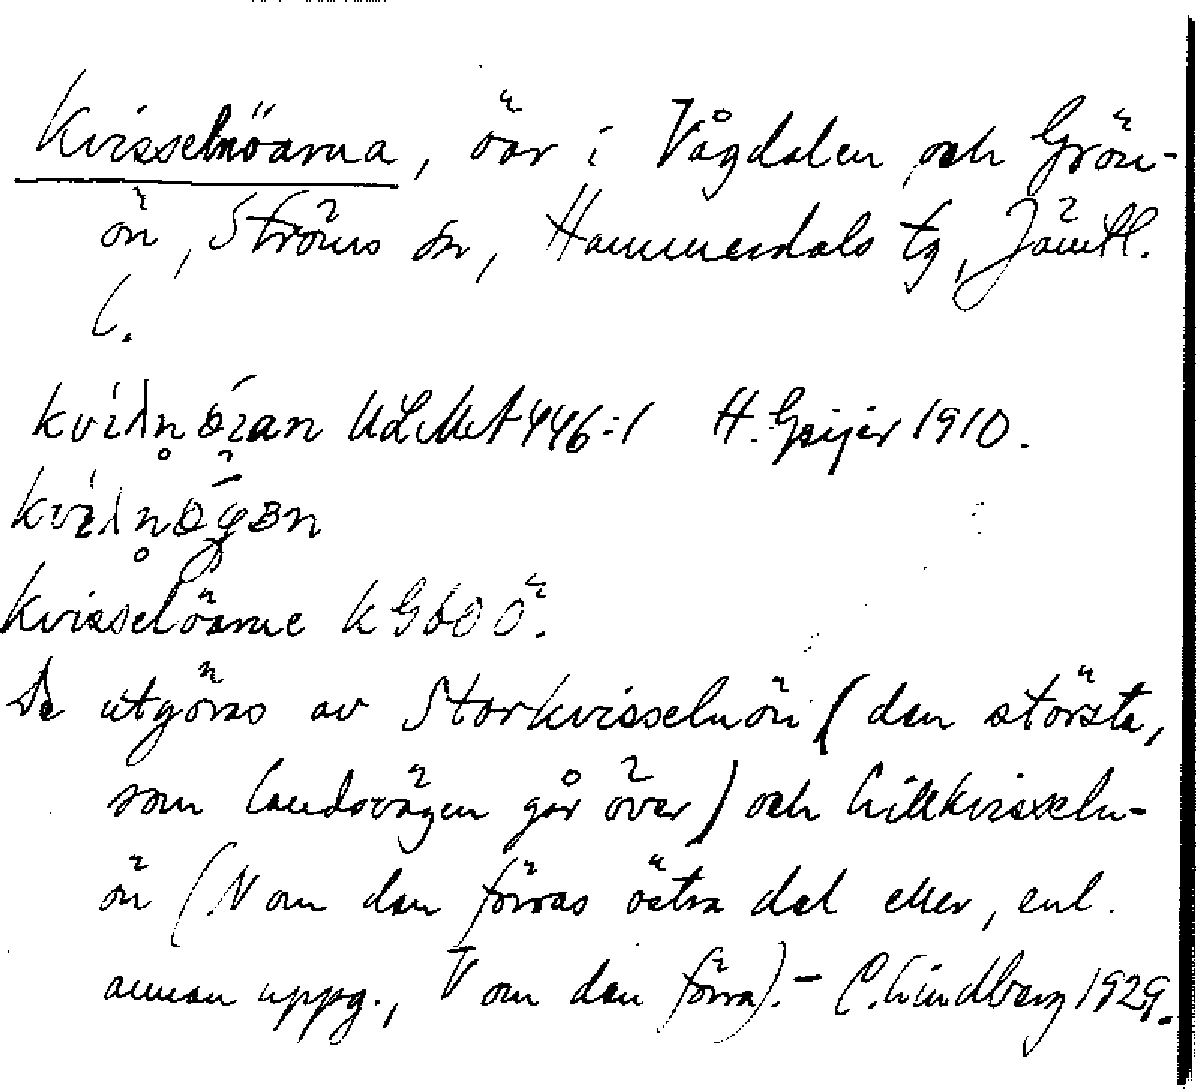 Kvisselnöarna, öar i Vågdalen och Grön-
ön, Ströms sn, Hammerdals tg, Jämtl.
l.
ULMA 446:1 H. Geijer 1910.
Kvisselöarne KG60Ö.
De utgöras av Storkvisselnön (den största,
som landsvägen går över) och Lillkvisseln-
ön (N om den förras östra del eller, enl.
annan uppg., V om den förra).- C. Lindberg 1929.